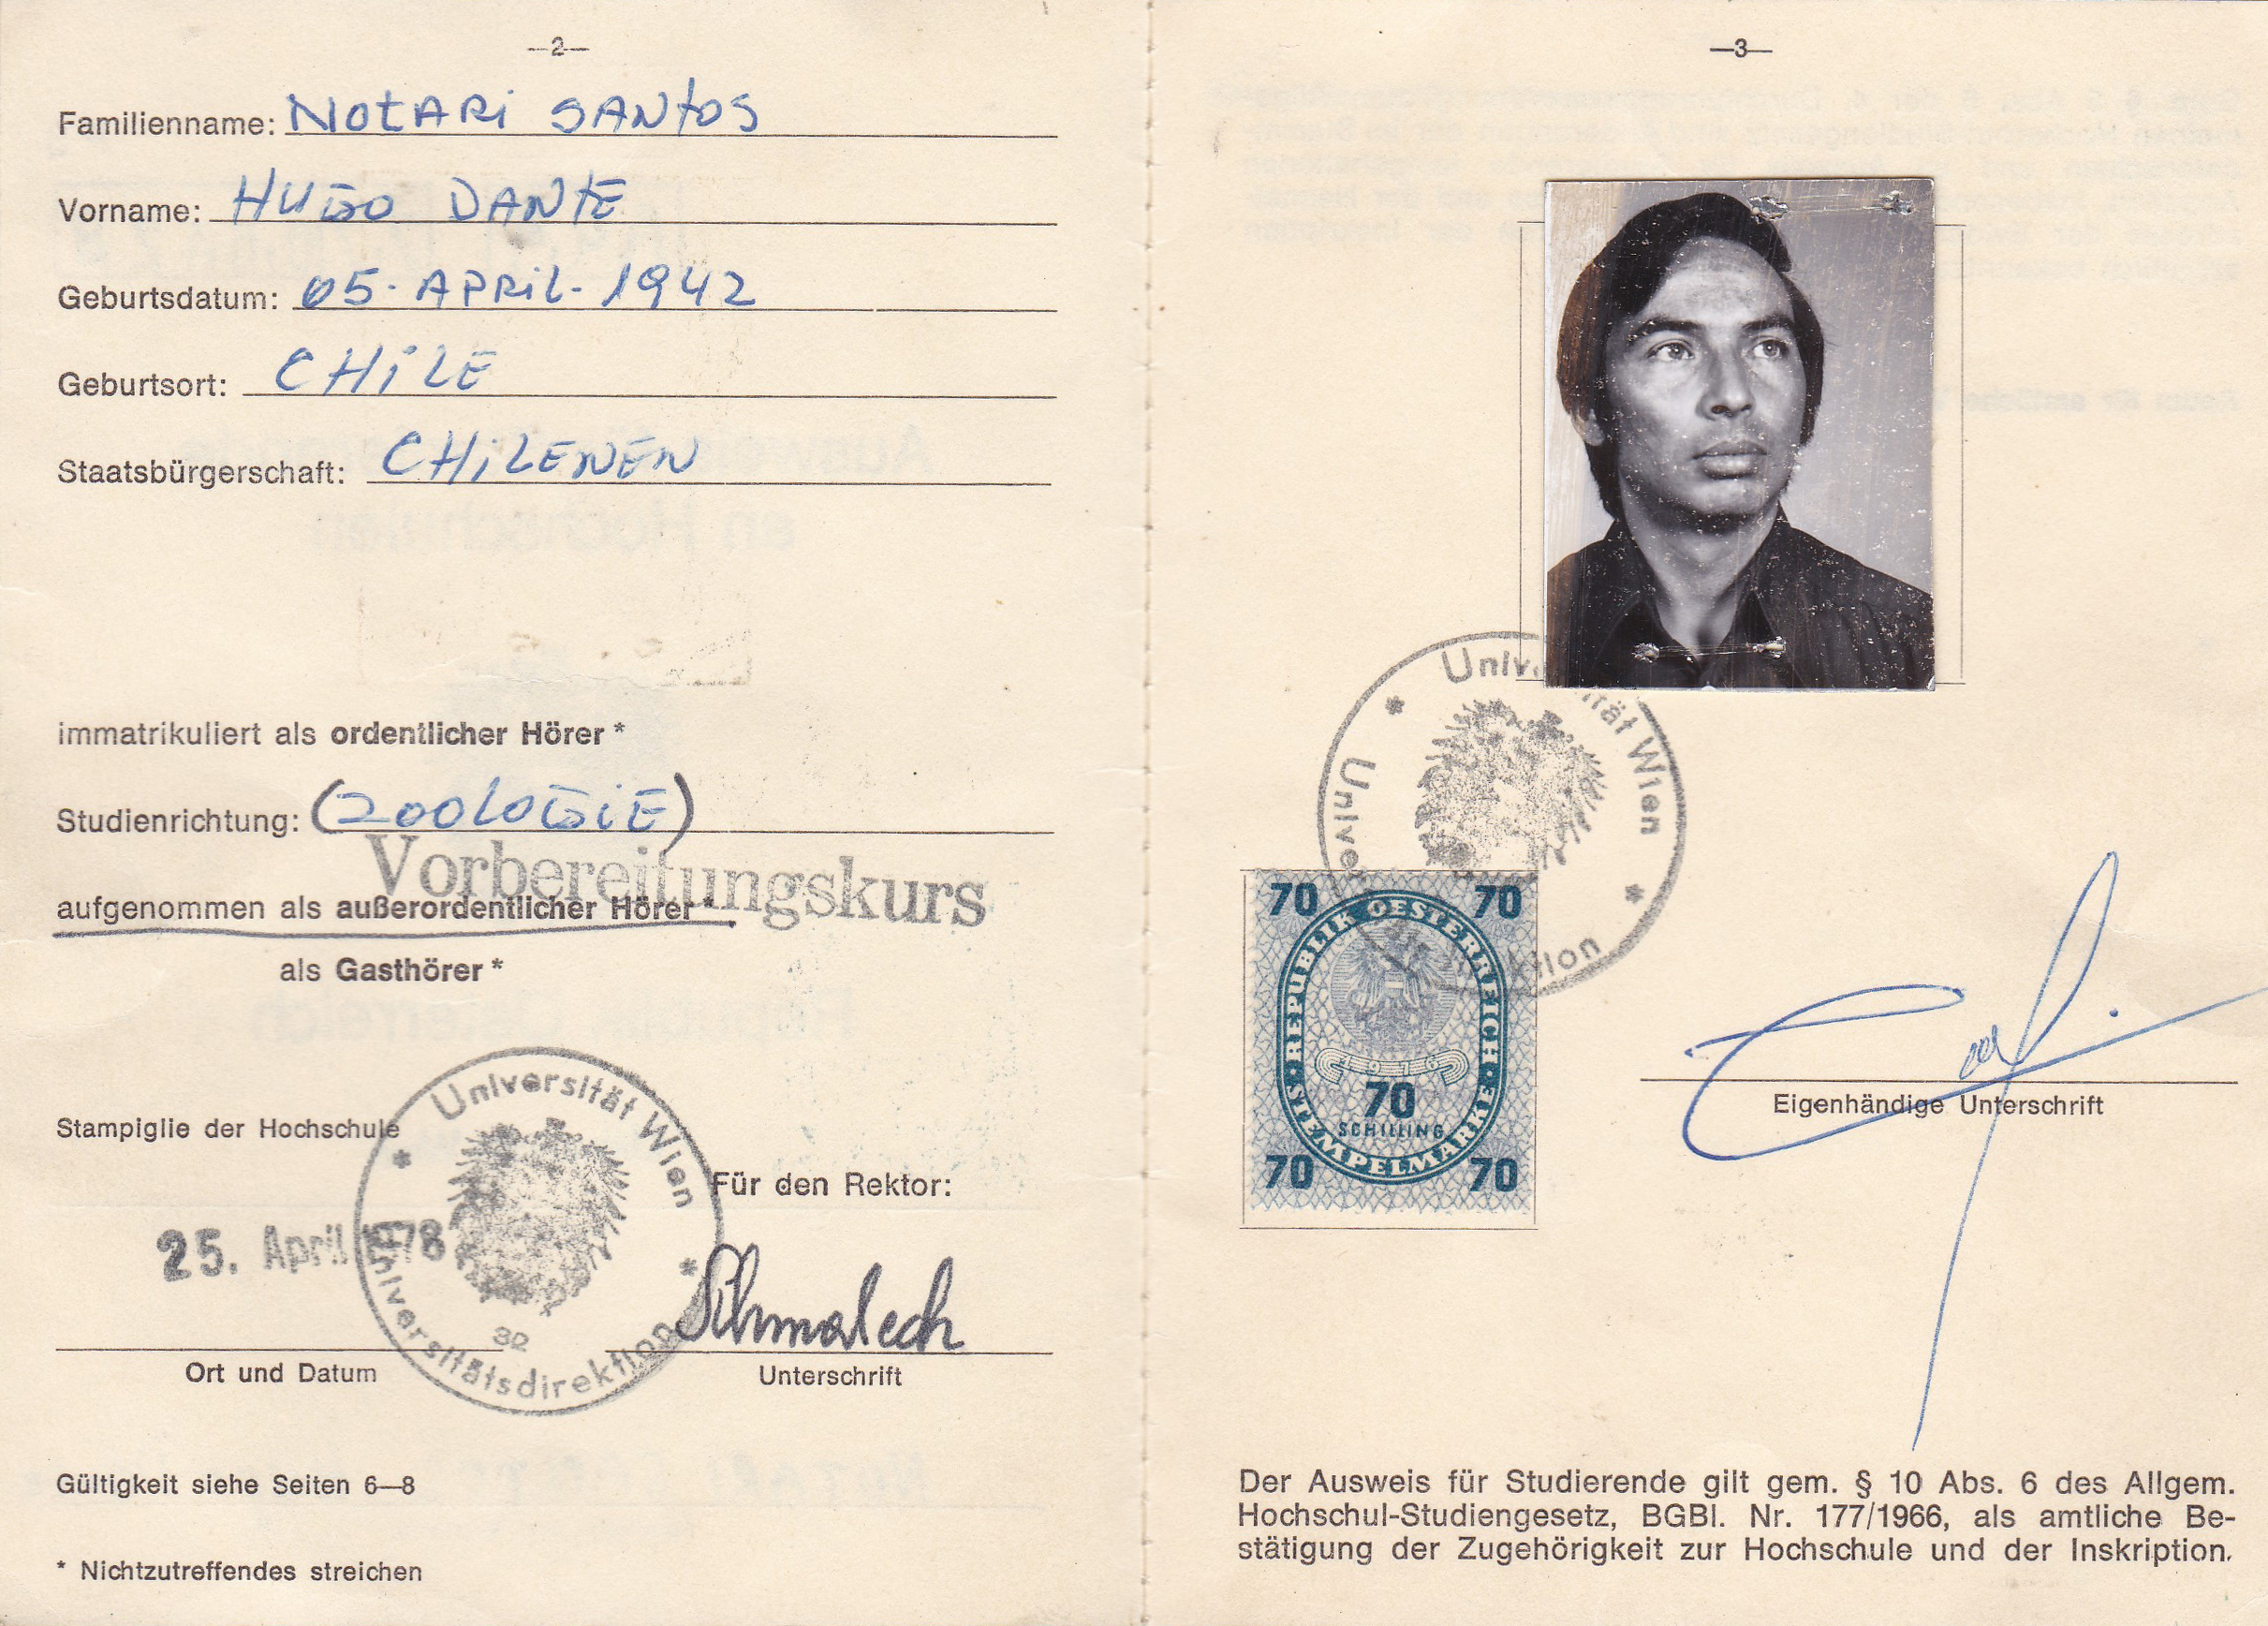 —2—
Familienname: NOTARI SANTOS
Vorname: HUGO DANTE
Geburtsdatum: 05. APRIL. 1942
Geburtsort: CHILE
Staatsbürgerschaft: CHILENEN
immatrikuliert als ordentlicher Hörer *
Studienrichtung: (ZOOLOGIE)
Vorbereitungskurs
aufgenommen als außerordentlicher Hörer *
als Gasthörer *
Stampiglie der Hochschule
Universität Wien
Universitätsdirektion
32
Für den Rektor:
25. April 1978
Ort und Datum
Unterschrift
Gültigkeit siehe Seiten 6—8
* Nichtzutreffendes streichen
—3—
Wien
70 70
REPUBLIK OESTERREICH
70
SCHILLING
STEMPELMARKE
70 70
Eigenhändige Unterschrift
Der Ausweis für Studierende gilt gem. § 10 Abs. 6 des Allgem.
Hochschul-Studiengesetz, BGBl. Nr. 177/1966, als amtliche Be-
stätigung der Zugehörigkeit zur Hochschule und der Inskription.